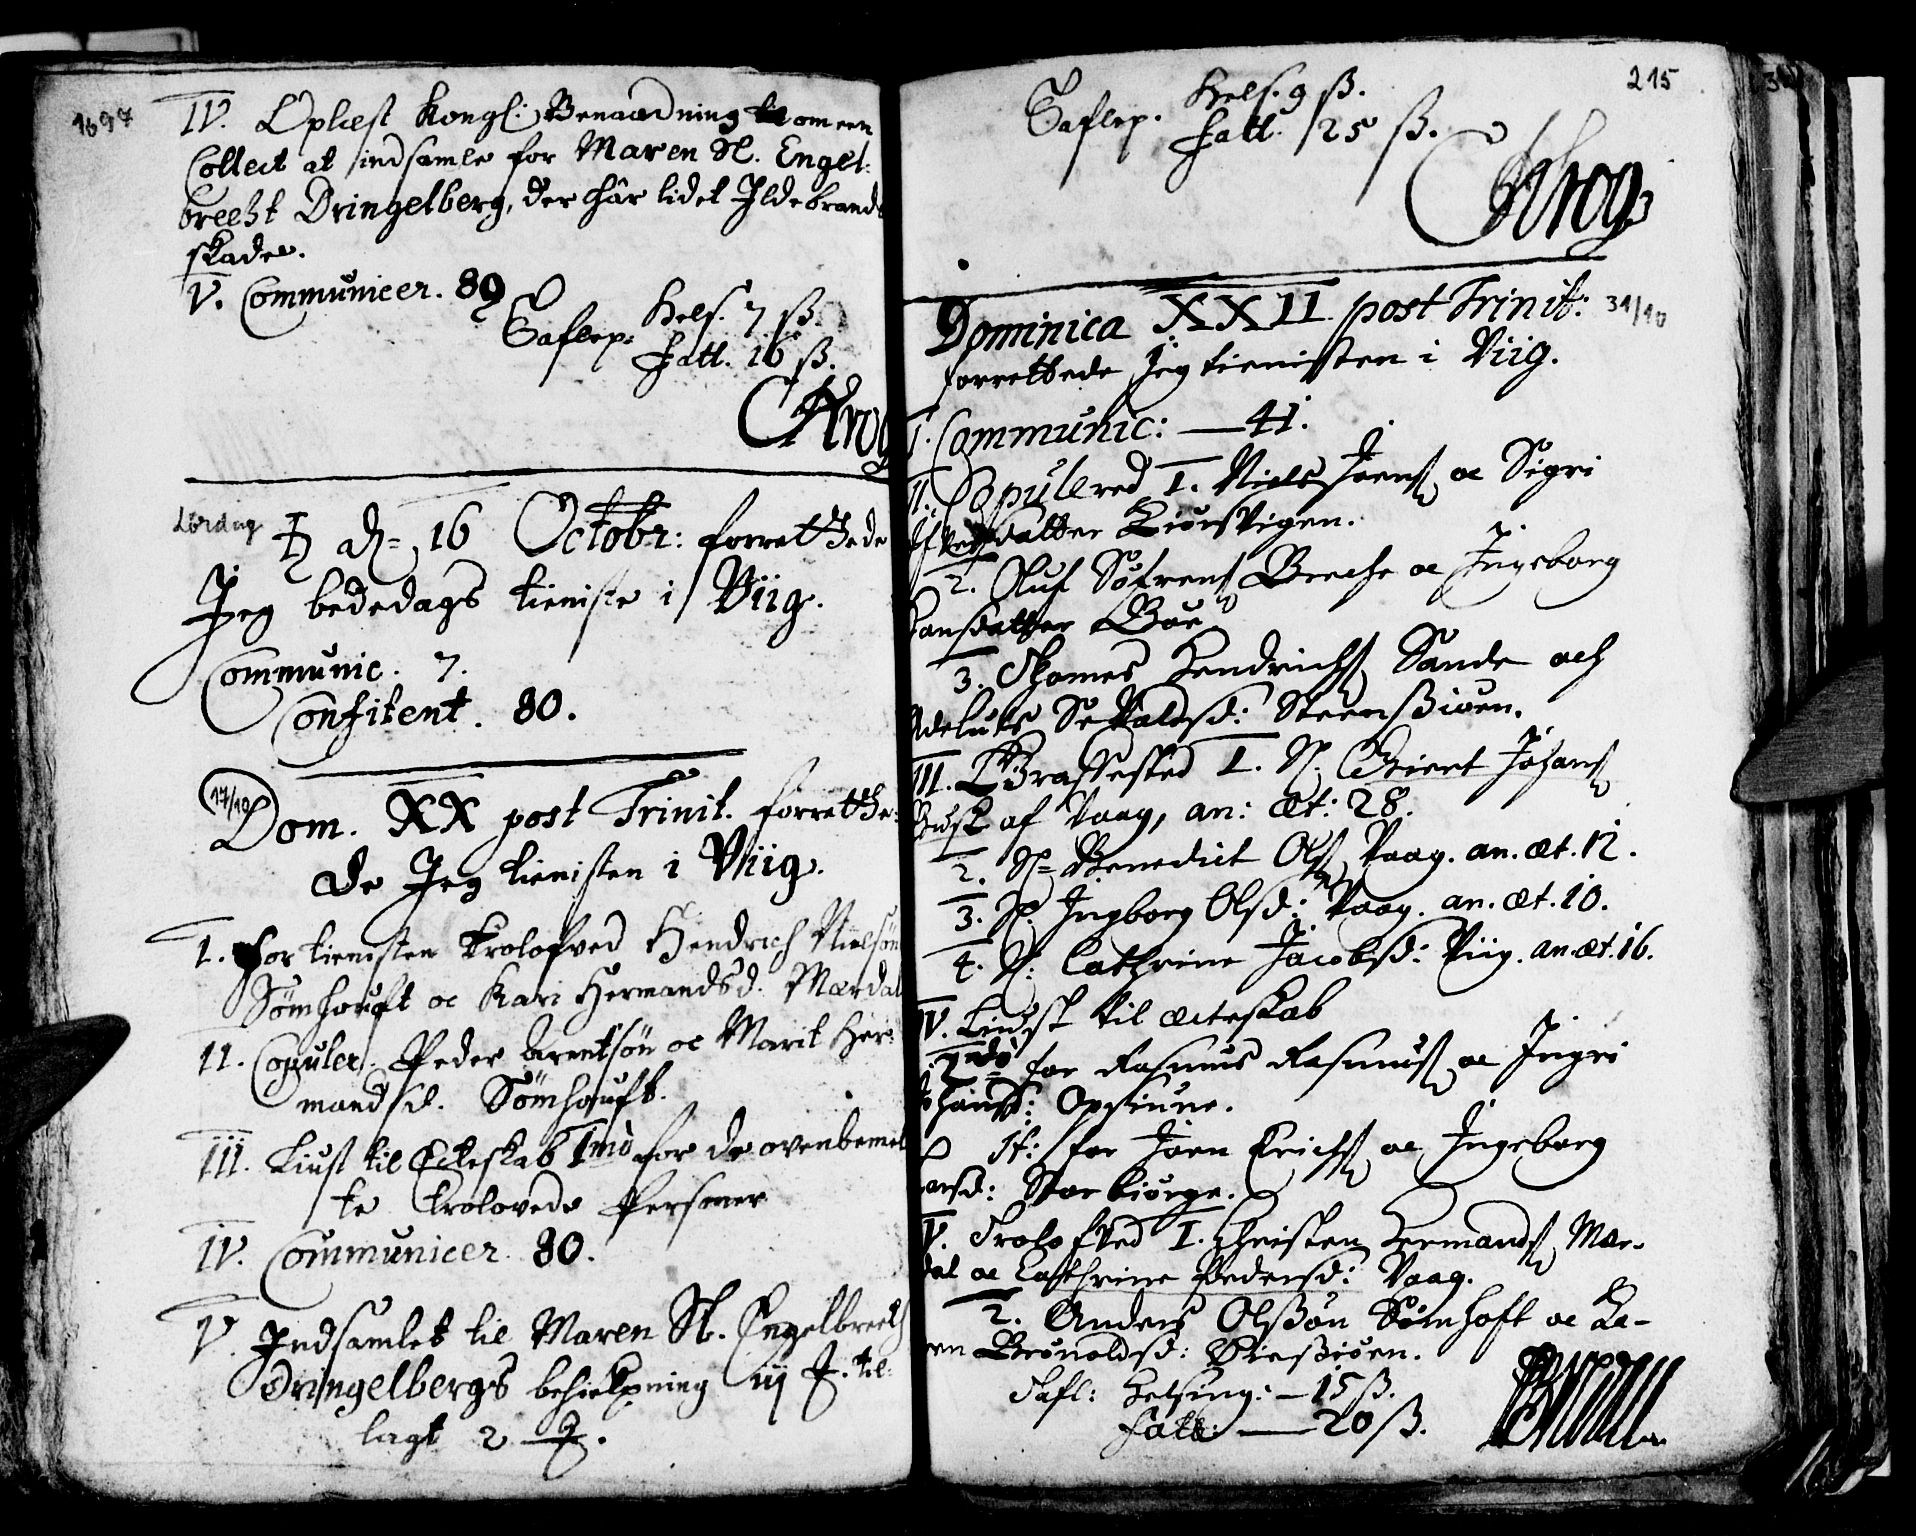 1697
IV. Oplæst Kongl: Benaadning om een
Collect at indsamle for Maren Sl. Engel:
brecht Dringelberg, der hâr lidet Ildebrands
skade.
V. Communicer. 89
Taflep: Hels. 7 ß.
Fatt. 16 ß.
CKrog
Lördag
♄ d. 16 Octobr: forretthede
Jeg bededags tieniste i Viig.
Communic. 7.
Confitent. 80.
17/10
Dom. XX post Trinit. forretthe:
de Jeg tienisten i Viig.
I. For tienisten Trolofved Hendrich Nielsön
Sömhouft oc Kari Hermandsd. Mærdal
II. Copuler. Peder Arentsön oc Marit Her:
mandsd. Sömhouft.
III. Liust til Ecteskab 1mo for de ovenbemel
te trolovede Personer
IV. Communicer. 80.
V. Indsamlet til Maren Sl. Engelbrecht
Dringelbergs behielpning iij. til:
lagt 2
215
Taflep. Hels. 9 ß.
Fatt. 25 ß.
CKrog
Dominica XXII post Trinit: 31/10
forrettede Jeg tienisten i Viig.
I. Communic: — 41.
II. Copulered 1. Niels Joens. oc Sigri
datter Kiörsvigen.
2. Oluf Söfrens. Breche oc Ingeborg
Hansdatter Böe
3. Thomes Hendrichs. Sande och
Adeluts Sevaldsd: Steensßiöen.
III. Græffested 1. Sl. Giert Johans.
Busk af Vaag, an: æt: 28.
2. Sl. Benedict Ols. Vaag. an. æt. 12.
3. Sl. Ingborg Olsd: Vaag. an. æt. 10.
4. Sl: Cathrine Jacobsd: Viig. an. æt. 16.
IV. Liust til æcteskab
2ndo for Rasmus Rasmus. oc Ingri
Johansd: Opsiune.
It: for Joen Erichs. oc Ingeborg
Larsd: Storbiörge.
V. Trolofved 1. Christen Hermands. Mær-
dal oc Cathrine Pedersd: Vaag.
2. Anders Olßön Sömhoft oc Ka-
ren Brönoldsd: Öiesßiöen.
Tafl: Helsing: — 15 ß.
Fatt: — 20 ß.